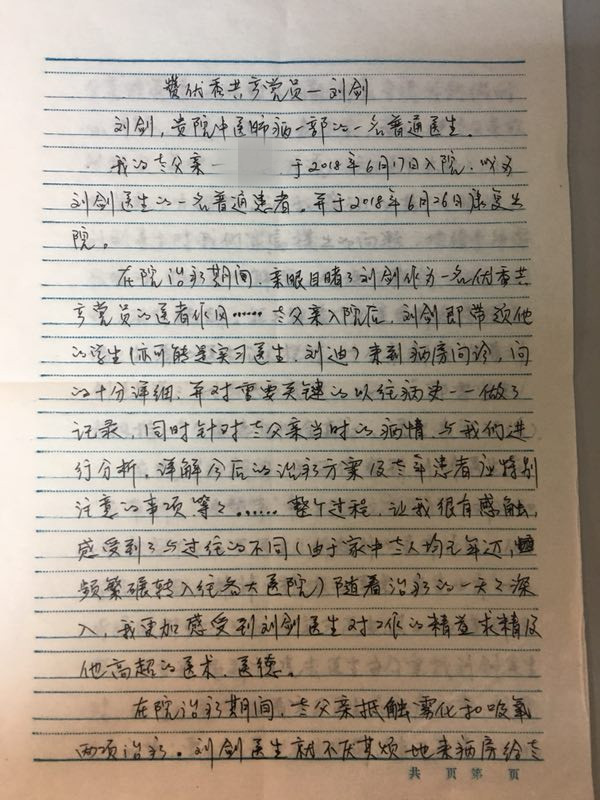 赞优秀共产党员—刘剑
刘剑，贵院中医肺病一部的一名普通医生。
我的老父亲 于2018年6月17日入院，成为
刘剑医生的一名普通患者。并于2018年6月26日康复出
院。
在院治疗期间，亲眼目睹了刘剑作为一名优秀共
产党员的医者作风……老父亲入院后，刘剑即带领他
的学生（亦可能是实习医生，刘迪）来到病房问诊，问
的十分详细，并对重要关键的以往病史一一做了
记录，同时针对老父亲当时的病情，与我们进
行分析，详解今后的治疗方案及老年患者应特别
注意的事项等等……整个过程，让我很有感触，
感受到了与过往的不同（由于家中老人均已年迈，
频繁碾转入往各大医院）随着治疗的一天天深
入，我更加感受到刘剑医生对工作的精益求精及
他高超的医术、医德。
在院治疗期间，老父亲抵触雾化和吸氧
两项治疗。刘剑医生就不厌其烦地来病房给老
共 页 第 页